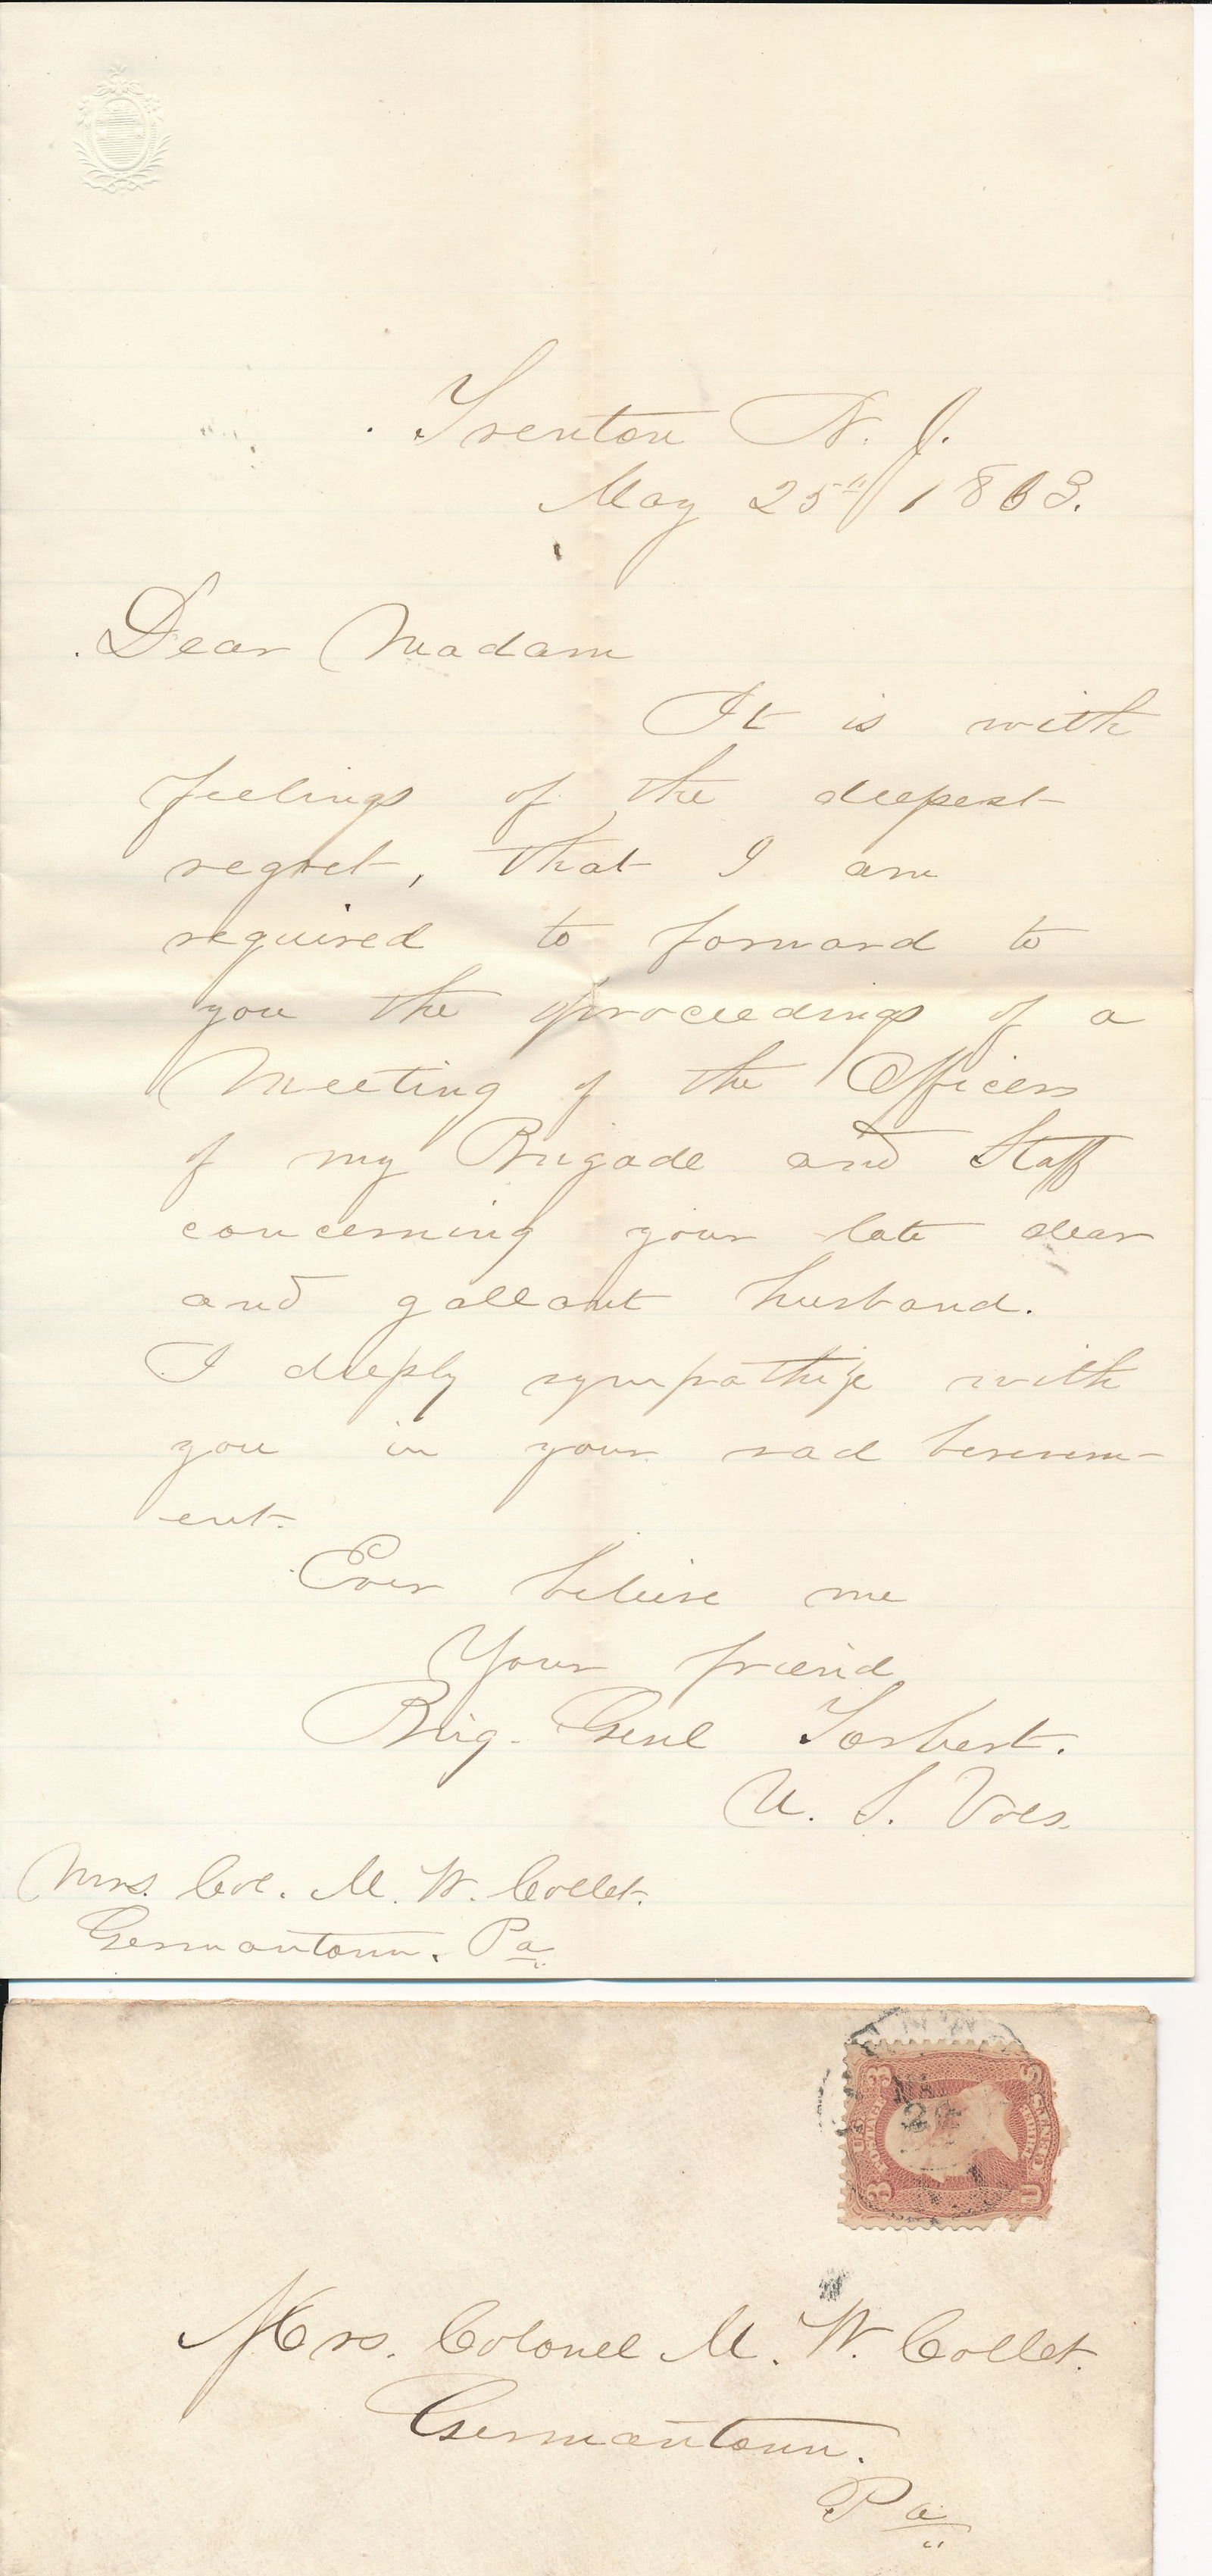 Trenton N. J.
May 25th 1863.
Dear Madam
It is with
feelings of the deepest
regret, that I am
required to forward to
you the proceedings of a
Meeting of the Officers
of my Brigade and Staff
concerning your late dear
and gallant husband.
I deeply sympathize with
you in your sad bereavem-
ent.
Ever believe me
Your friend
Brig. Genl Torbert.
U. S. Vols.
Mrs. Col. M. W. Collet.
Germantown. Pa
3 U
U.S. POSTAGE
THREE CENTS
3 S
Mrs. Colonel M. W. Collet.
Germantown.
Pa